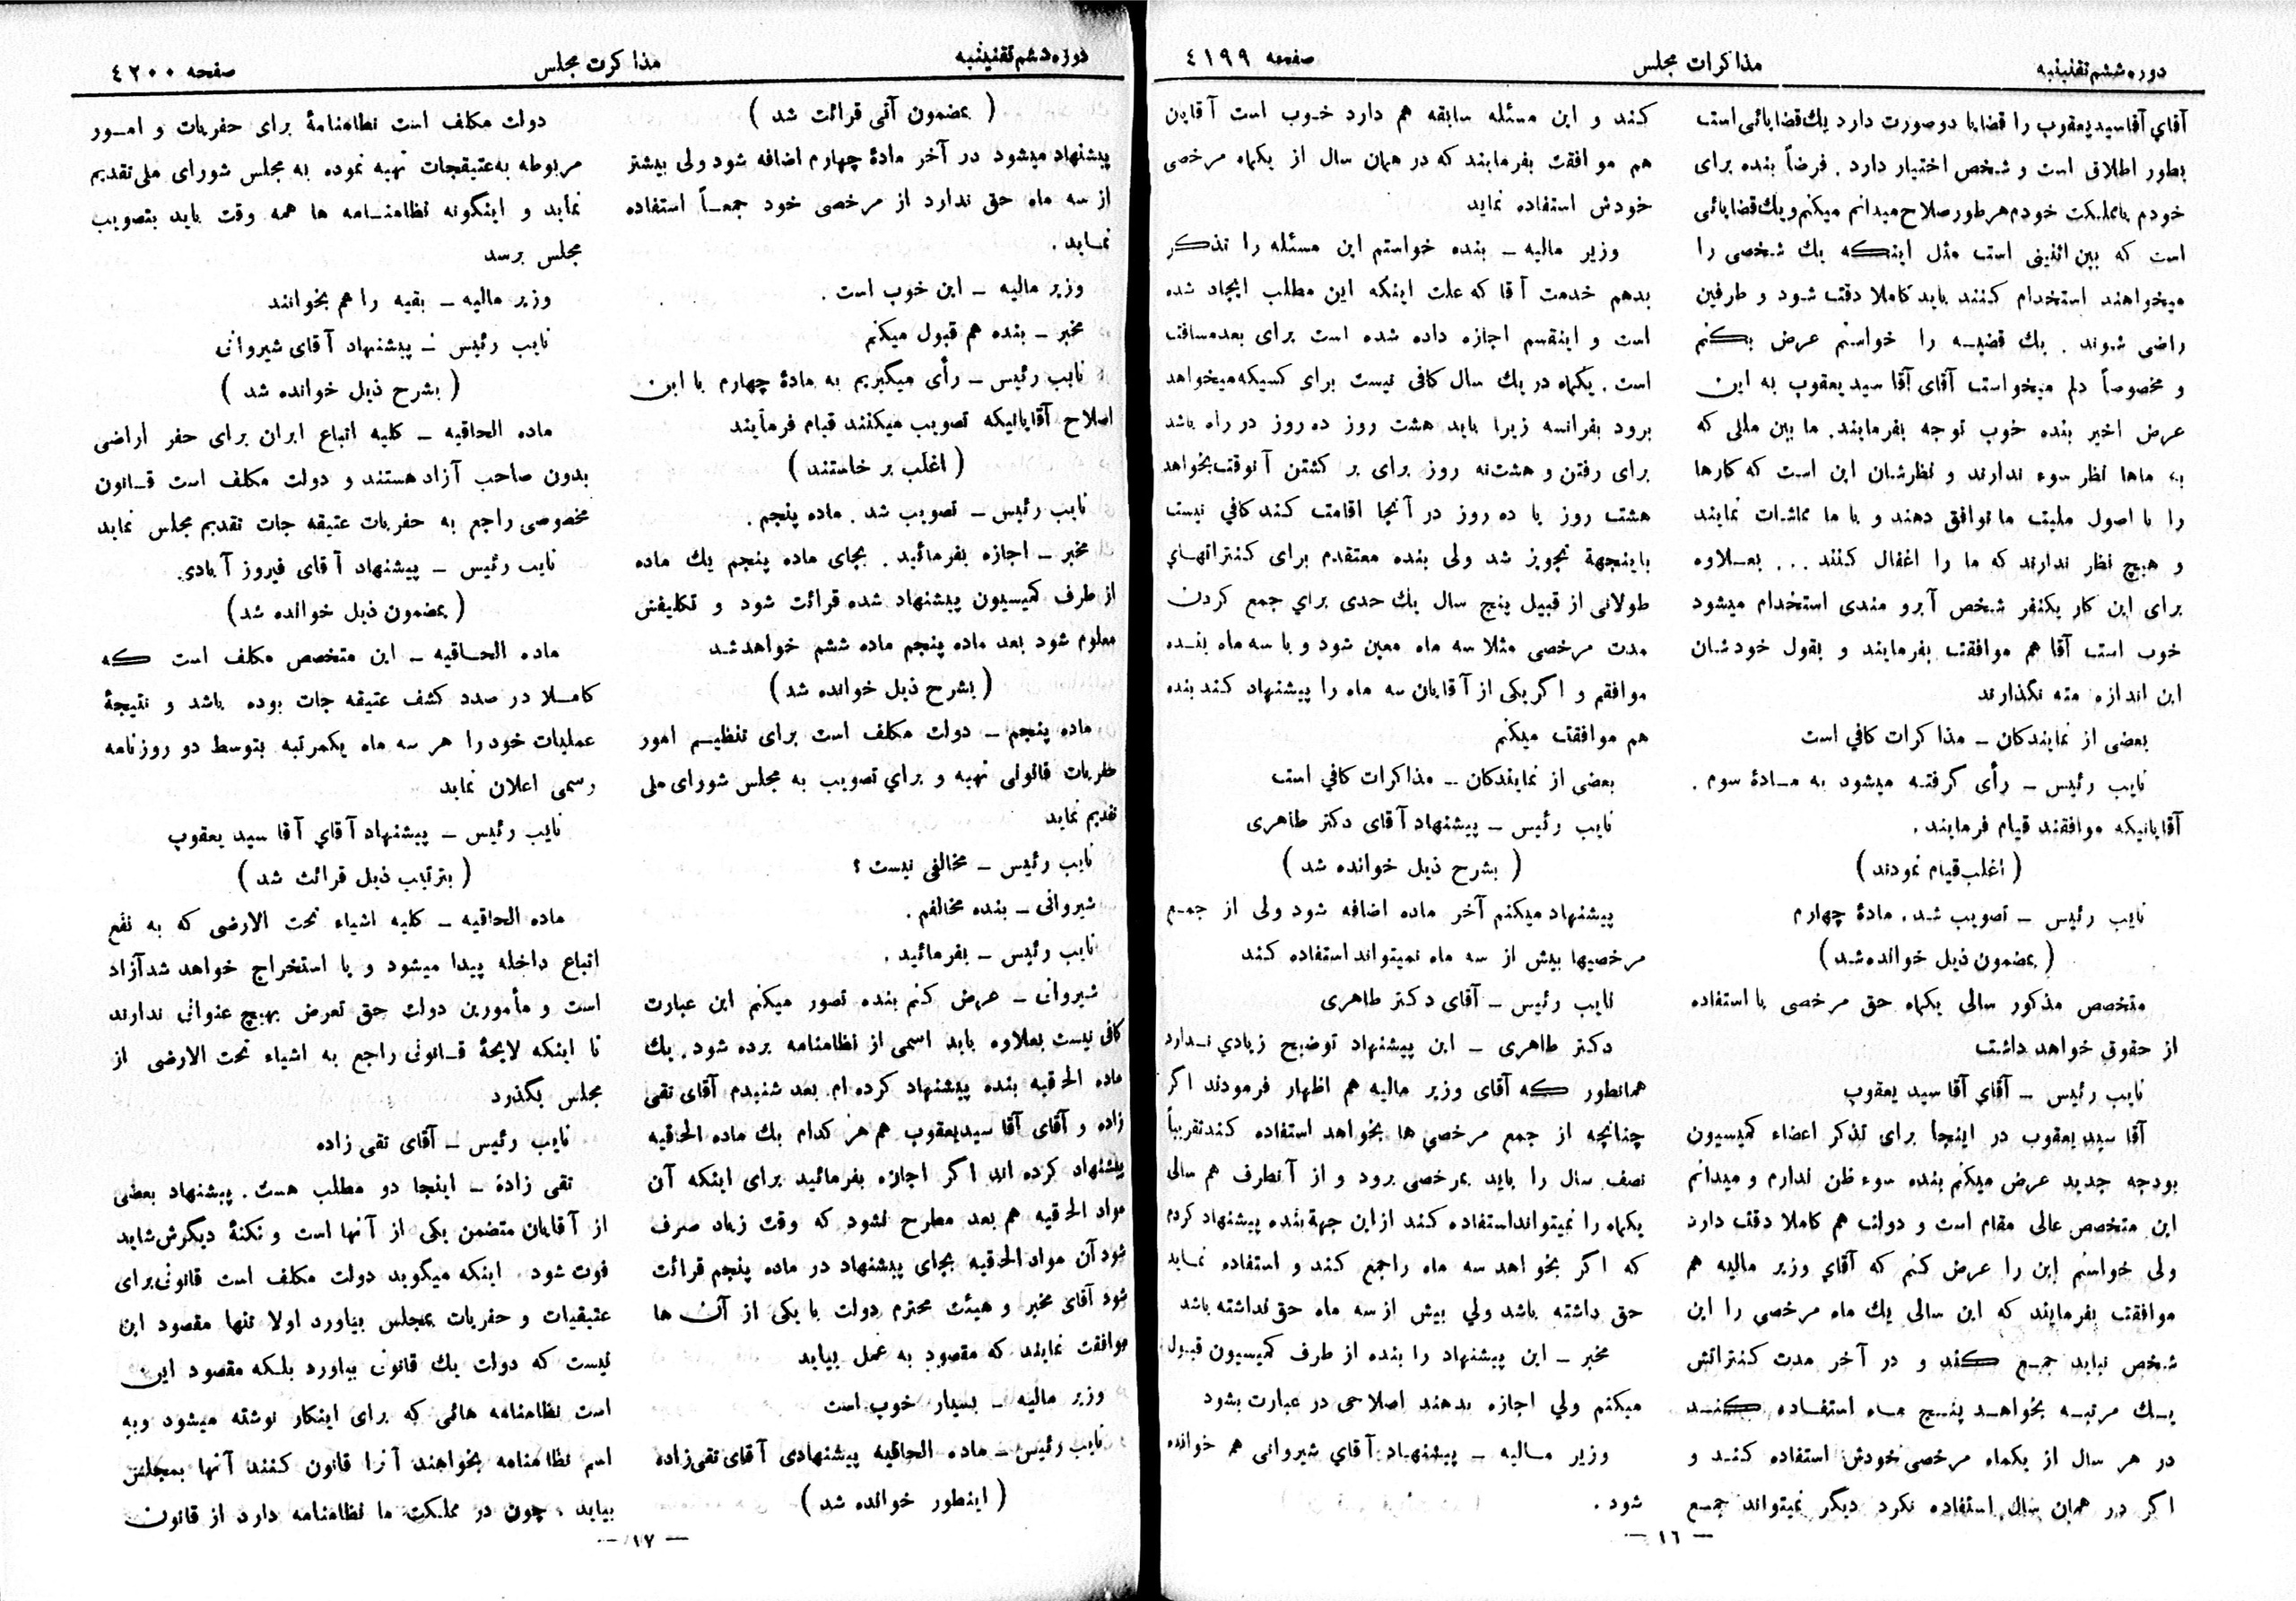 دوره ششم تقنینیه
مذاکرات مجلس
صفحه ٤١٩٩
آقاي آقاسید یعقوب را قضایا دو صورت دارد یك قضایائی است
بطور اطلاق است و شخص اختیار دارد . فرضاً بنده برای
خودم یا مملکت خودم هر طور صلاح میدانم میکنم و یك قضایائی
است که بین اثنینی است مثل اینکه یك شخصی را
میخواهند استخدام کنند باید کاملا دقت شود و طرفین
راضی شوند . یك قضیه را خواستم عرض بکنم
و مخصوصاً دلم میخواست آقای آقا سید یعقوب به این
عرض اخیر بنده خوب توجه بفرمایند. ما بین مللی که
به ماها نظر سوء ندارند و نظرشان این است که کارها
را با اصول ملیت ما توافق دهند و با ما مماشات نمایند
و هیچ نظر ندارند که ما را اغفال کنند ... بعلاوه
برای این کار یکنفر شخص آبرو مندی استخدام میشود
خوب است آقا هم موافقت بفرمایند و بقول خودشان
این اندازه مته نگذارند
بعضی از نمایندکان ـ مذاکرات کافي است
نایب رئیس ـ رأی گرفته میشود به مادهٔ سوم .
آقایانیکه موافقند قیام فرمایند .
( اغلب قیام نمودند )
نایب رئیس ـ تصویب شد . مادهٔ چهارم
( بمضمون ذیل خوانده شد )
متخصص مذکور سالی یکماه حق مرخصی با استفاده
از حقوق خواهد داشت
نایب رئیس ـ آقاي آقا سید یعقوب
آقا سید یعقوب در اینجا برای تذکر اعضاء کمیسیون
بودجه جدید عرض میکنم بنده سوء ظن ندارم و میدانم
این متخصص عالی مقام است و دولت هم کاملا دقت دارد
ولی خواستم این را عرض کنم که آقاي وزیر مالیه هم
موافقت بفرمایند که این سالی یك ماه مرخصی را این
شخص نیاید جمع کند و در آخر مدت کنتراتش
یك مرتبه بخواهد پنج ماه استفاده کند
در هر سال از یکماه مرخصی خودش استفاده کند و
اگر در همان سال استفاده نکرد دیگر نمیتواند جمع
کند و این مسئله سابقه هم دارد خوب است آقایان
هم موافقت بفرمایند که در همان سال از یکماه مرخصی
خودش استفاده نماید
وزیر مالیه ـ بنده خواستم این مسئله را تذکر
بدهم خدمت آقا که علت اینکه این مطلب ایجاد شده
است و اینقسم اجازه داده شده است برای بعد مسافت
است . یکماه در یك سال کافی نیست برای کسیکه میخواهد
برود بفرانسه زیرا باید هشت روز ده روز در راه باشد
برای رفتن و هشت نه روز برای بر کشتن آنوقت بخواهد
هشت روز یا ده روز در آنجا اقامت کند کافي نیست
باینجهة تجویز شد ولی بنده معتقدم برای کنتراتهاي
طولانی از قبیل پنج سال یك حدی براي جمع کردن
مدت مرخصی مثلا سه ماه معین شود و با سه ماه بنده
موافقم و اگر یکی از آقایان سه ماه را پیشنهاد کند بنده
هم موافقت میکنم
بعضی از نمایندکان ـ مذاکرات کافي است
نایب رئیس ـ پیشنهاد آقای دکتر طاهری
( بشرح ذیل خوانده شد )
پیشنهاد میکنم آخر ماده اضافه شود ولی از جمع
مرخصیها بیش از سه ماه نمیتواند استفاده کند
نایب رئیس ـ آقای دکتر طاهری
دکتر طاهری ـ این پیشنهاد توضیح زیادي ندارد
همانطور که آقای وزیر مالیه هم اظهار فرمودند اگر
چنانچه از جمع مرخصي ها بخواهد استفاده کند تقریباً
نصف سال را باید بمرخصی برود و از آنطرف هم سالی
یکماه را نمیتواند استفاده کند از این جهة بنده پیشنهاد کردم
که اگر بخواهد سه ماه را جمع کند و استفاده نماید
حق داشته باشد ولي بیش از سه ماه حق نداشته باشد
مخبر ـ این پیشنهاد را بنده از طرف کمیسیون قبول
میکنم ولي اجازه بدهند اصلاحی در عبارت بشود
وزیر مالیه ـ پیشنهاد آقاي شیروانی هم خوانده
شود .
ـ ١٦ ـ
دوره ششم تقنینیه
مذاکرت مجلس
صفحه ٤٢٠٠
( بمضمون آتی قرائت شد )
پیشنهاد میشود در آخر مادهٔ چهارم اضافه شود ولی بیشتر
از سه ماه حق ندارد از مرخصی خود جمعاً استفاده
نماید .
وزیر مالیه ـ این خوب است .
مخبر ـ بنده هم قبول میکنم
نایب رئیس ـ رأی میگیریم به مادهٔ چهارم با این
اصلاح آقایانیکه تصویب میکنند قیام فرمایند
( اغلب بر خاستند )
نایب رئیس ـ تصویب شد . ماده پنجم .
مخبر ـ اجازه بفرمائید . بجای ماده پنجم یك ماده
از طرف کمیسیون پیشنهاد شده قرائت شود و تکلیفش
معلوم شود بعد ماده پنجم ماده ششم خواهد شد
( بشرح ذیل خوانده شد )
ماده پنجم ـ دولت مکلف است برای تنظیم امور
حفریات قانونی تهیه و براي تصویب به مجلس شورای ملی
تقدیم نماید
نایب رئیس ـ مخالفی نیست ؟
شیروانی ـ بنده مخالفم .
نایب رئیس ـ بفرمائید .
شیروانی ـ عرض کنم بنده تصور میکنم این عبارت
کافی نیست بعلاوه باید اسمی از نظامنامه برده شود . یك
ماده الحاقیه بنده پیشنهاد کرده ام. بعد شنیدم آقای تقی
زاده و آقای آقا سید یعقوب هم هر کدام یك ماده الحاقیه
پیشنهاد کرده اند اگر اجازه بفرمائید برای اینکه آن
مواد الحاقیه هم بعد مطرح نشود که وقت زیاد صرف
شود آن مواد الحاقیه بجای پیشنهاد در ماده پنجم قرائت
شود آقای مخبر و هیئت محترم دولت با یکی از آن ها
موافقت نمایند که مقصود به عمل بیاید
وزیر مالیه ـ بسیار خوب است
نایب رئیس ـ ماده الحاقیه پیشنهادی آقای تقی زاده
( اینطور خوانده شد )
دولت مکلف است نظامنامهٔ برای حفریات و امور
مربوطه به عتیقجات تهیه نموده به مجلس شورای ملی تقدیم
نماید و اینگونه نظامنامه ها همه وقت باید بتصویب
مجلس برسد
وزیر مالیه ـ بقیه را هم بخوانند
نایب رئیس ـ پیشنهاد آقای شیروانی
( بشرح ذیل خوانده شد )
ماده الحاقیه ـ کلیه اتباع ایران برای حفر اراضی
بدون صاحب آزاد هستند و دولت مکلف است قانون
مخصوصی راجع به حفریات عتیقه جات تقدیم مجلس نماید
نایب رئیس ـ پیشنهاد آقای فیروز آبادی.
( بمضمون ذیل خوانده شد )
ماده الحاقیه ـ این متخصص مکلف است که
کاملا در صدد کشف عتیقه جات بوده باشد و نتیجهٔ
عملیات خود را هر سه ماه یکمرتبه بتوسط دو روزنامه
رسمی اعلان نماید
نایب رئیس ـ پیشنهاد آقاي آقا سید یعقوب
( بترتیب ذیل قرائت شد )
ماده الحاقیه ـ کلیه اشیاء تحت الارضی که به نفع
اتباع داخله پیدا میشود و یا استخراج خواهد شد آزاد
است و مأمورین دولت حق تعرض بهیچ عنوانی ندارند
تا اینکه لایحهٔ قانونی راجع به اشیاء تحت الارضی از
مجلس بگذرد
نایب رئیس ـ آقای تقی زاده
تقی زاده ـ اینجا دو مطلب هست . پیشنهاد بعضی
از آقایان متضمن یکی از آنها است و نکتهٔ دیگرش شاید
فوت شود . اینکه میگوید دولت مکلف است قانونی برای
عتیقیات و حفریات بمجلس بیاورد اولا تنها مقصود این
نیست که دولت یك قانونی بیاورد بلکه مقصود این
است نظامنامه هائی که برای اینکار نوشته میشود و به
اسم نظامنامه بخواهند آنرا قانون کنند آنها بمجلس
بیاید . چون در مملکت ما نظامنامه دارد از قانون
ـ ١٧ ـ